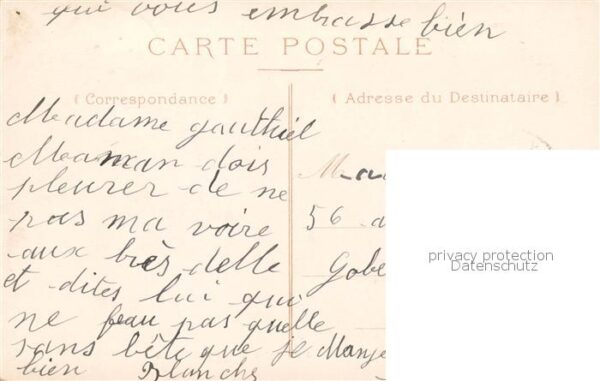 qui vous embrasse bien
CARTE POSTALE
(Correspondance)
(Adresse du Destinataire)
Madame gauthiel
Maman dois
pleurer de ne
pas ma voire
aux bres delle
et dites lui qui
ne feau pas quelle
sans bête que je Manje
bien Blanche
Ma
56 a
Gobe
privacy protection
Datenschutz